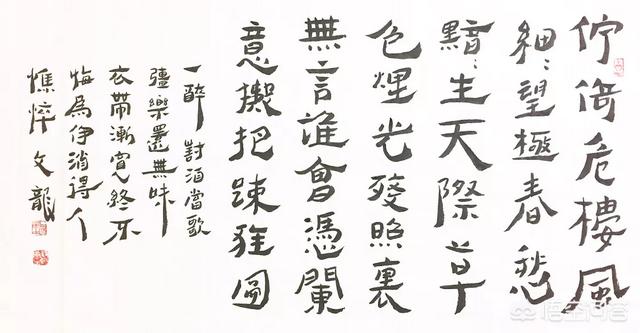 佇倚危樓風
細〻望極春愁
黯〻生天際草
色煙光殘照裏
無言誰會憑闌
意擬把踈狂圖
一醉 對酒當歌
彊樂還無味
衣帶漸寬終不
悔為伊消得人
憔悴 文龍
悟空问答